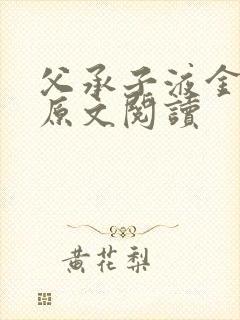 父承子液金
原文閱讀
黄花梨